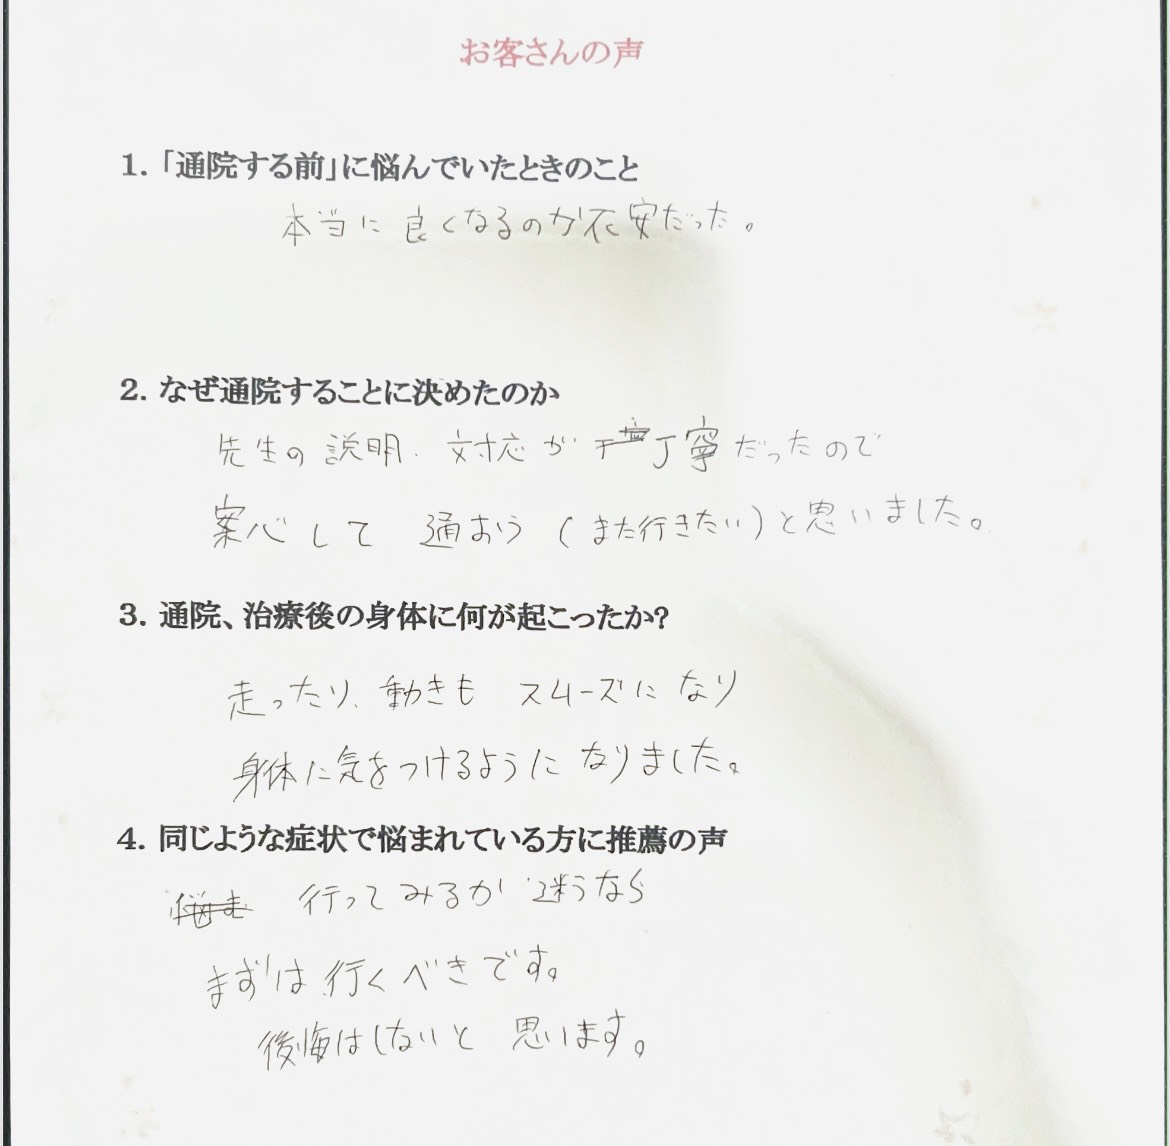 お客さんの声
1. 「通院する前」に悩んでいたときのこと
本当に良くなるのか不安だった。
2. なぜ通院することに決めたのか
先生の説明、対応が丁寧だったので
案心して 通おう (また行きたい)と思いました。
3. 通院、治療後の身体に何が起こったか?
走ったり、動きも スムーズに なり
身体に気をつけるように なりました。
4. 同じような症状で悩まれている方に推薦の声
悩ま 行ってみるか 迷うなら
まずは行くべきです。
後悔はしないと 思います。